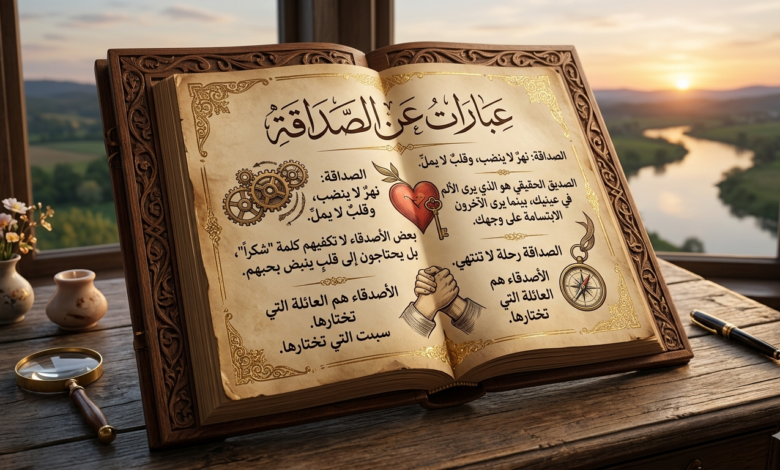 عِبَارَاتُ عَنِ الصَّدَاقَةِ
الصداقة: نهرٌ لا ينضب، وقلبٌ لا يملّ.
الصديق الحقيقي هو الذي يرى الألم
في عينيك، بينما يرى الآخرون
الابتسامة على وجهك.
الصداقة رحلة لا تنتهي.
الأصدقاء هم
العائلة التي
تختارها.
الصداقة:
نهرٌ لا ينضب،
وقلبٌ لا يملّ.
بعض الأصدقاء لا تكفيهم كلمة "شكراً"،
بل يحتاجون إلى قلبٍ ينبض بحبهم.
الأصدقاء هم العائلة التي
تختارها.
سبت التي تختارها.